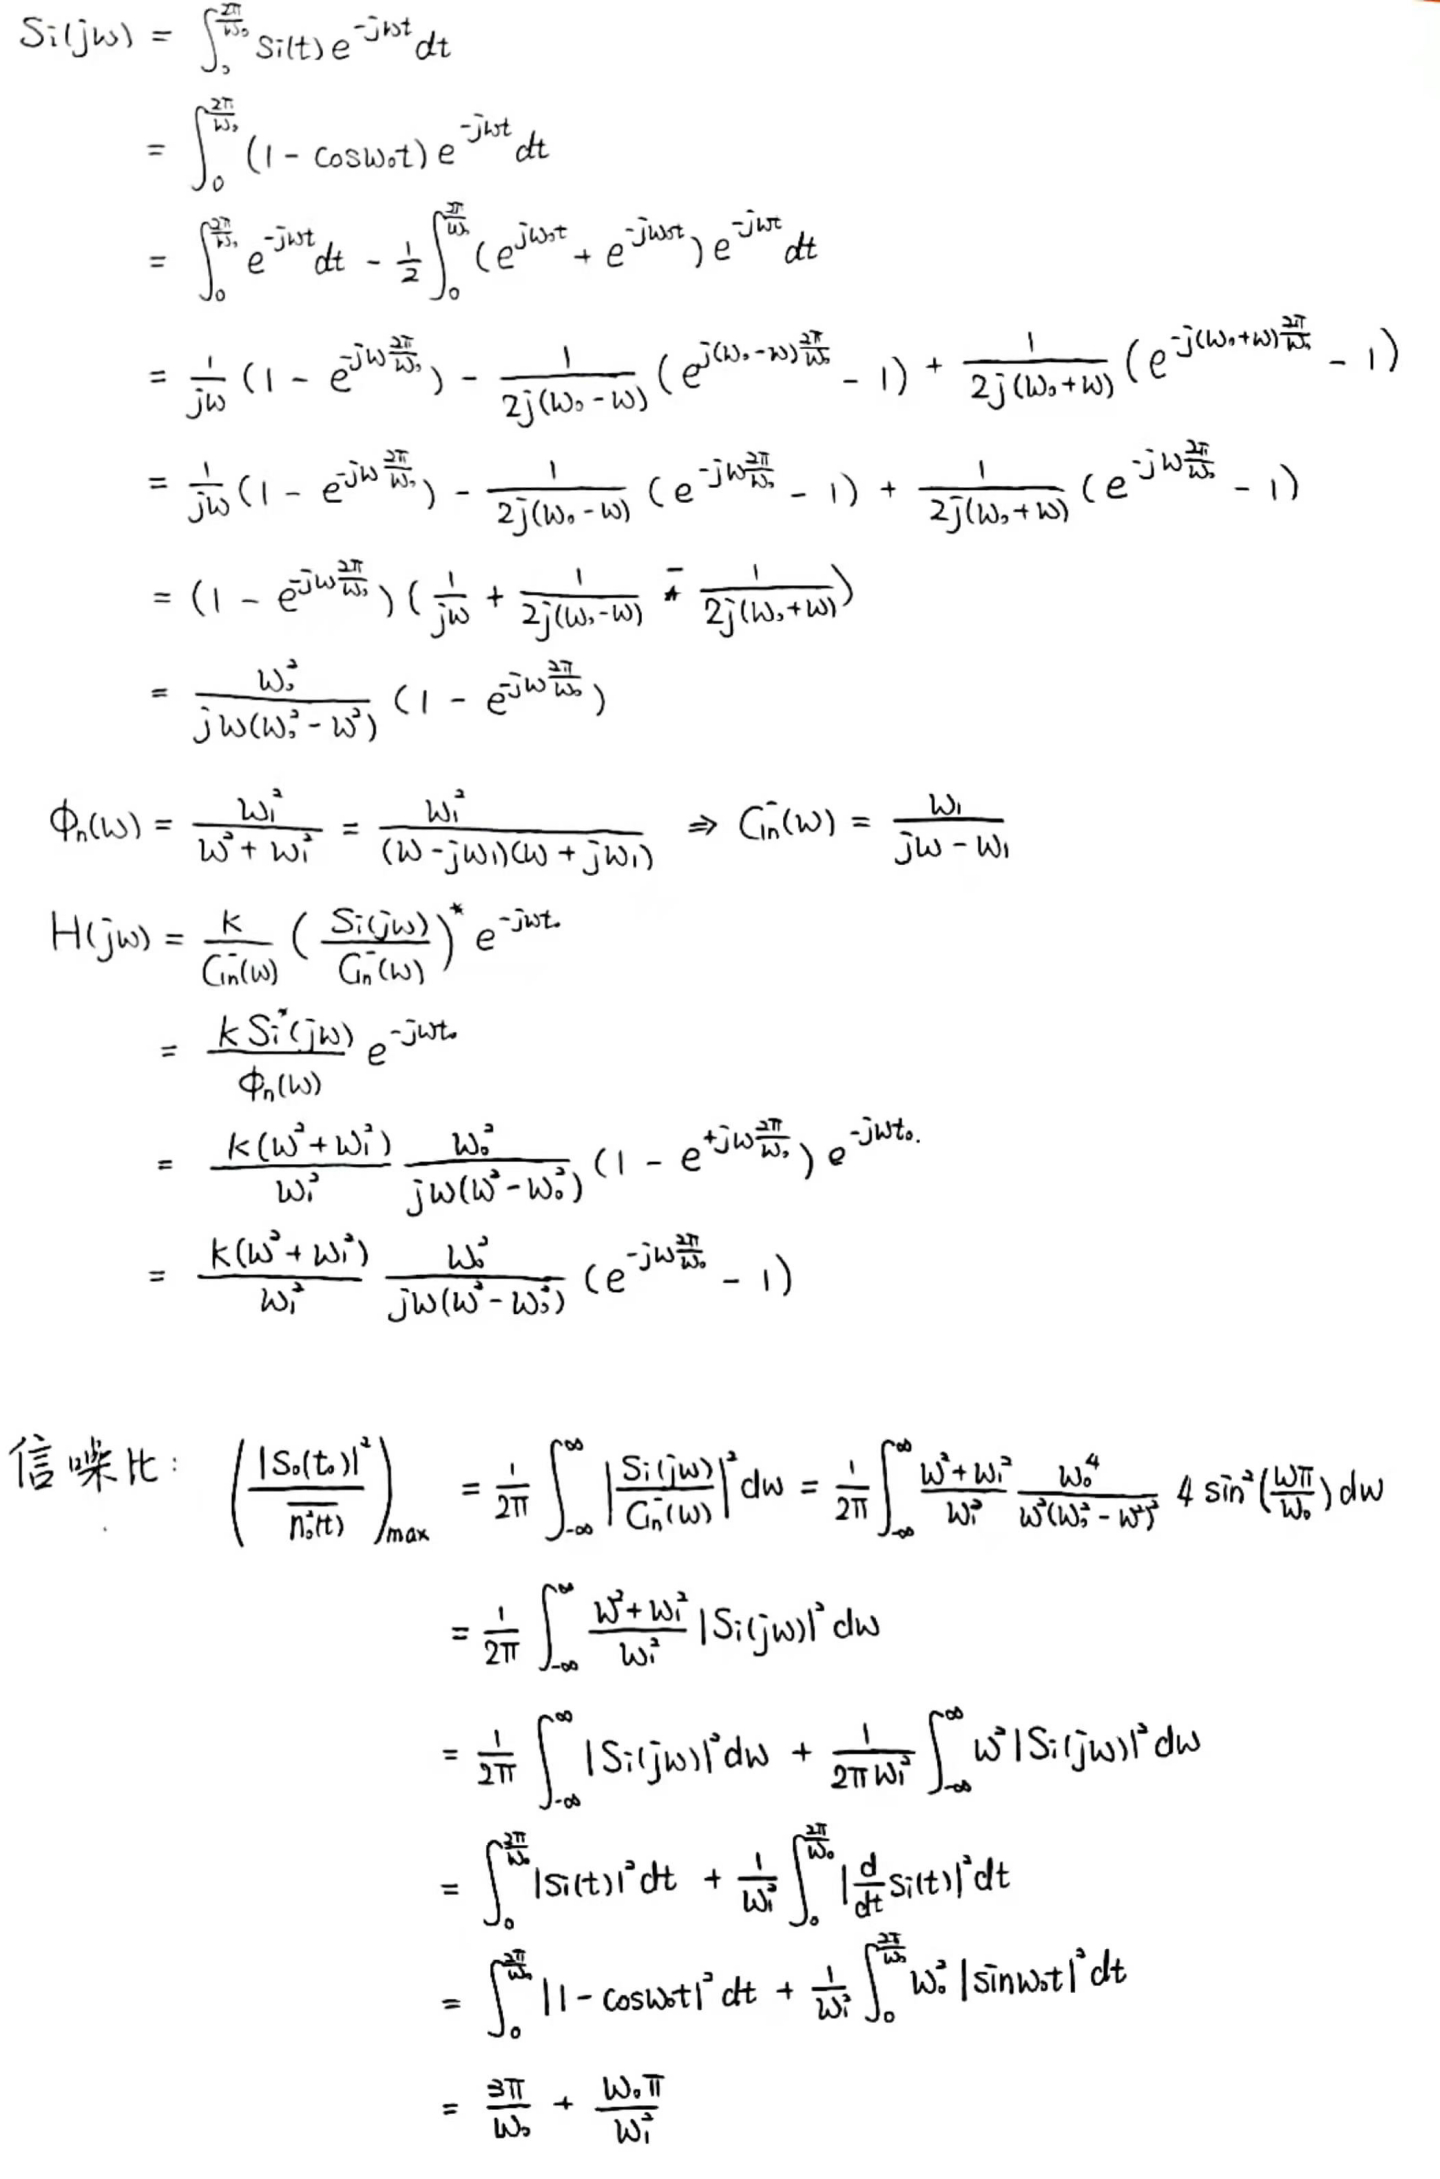 Si(jω) = ∫₀^{2π/ω₀} Si(t) e^{-jωt} dt
= ∫₀^{2π/ω₀} (1 - cosω₀t) e^{-jωt} dt
= ∫₀^{2π/ω₀} e^{-jωt} dt - 1/2 ∫₀^{2π/ω₀} (e^{jω₀t} + e^{-jω₀t}) e^{-jωt} dt
= 1/(jω) (1 - e^{-jω 2π/ω₀}) - 1/(2j(ω₀-ω)) (e^{j(ω₀-ω) 2π/ω₀} - 1) + 1/(2j(ω₀+ω)) (e^{-j(ω₀+ω) 2π/ω₀} - 1)
= 1/(jω) (1 - e^{-jω 2π/ω₀}) - 1/(2j(ω₀-ω)) (e^{-jω 2π/ω₀} - 1) + 1/(2j(ω₀+ω)) (e^{-jω 2π/ω₀} - 1)
= (1 - e^{-jω 2π/ω₀}) (1/(jω) + 1/(2j(ω₀-ω)) - 1/(2j(ω₀+ω)))
= ω₀²/(jω(ω₀²-ω²)) (1 - e^{-jω 2π/ω₀})
Φn(ω) = ω₁²/(ω²+ω₁²) = ω₁²/((ω-jω₁)(ω+jω₁)) ⇒ Gn⁻(ω) = ω₁/(jω-ω₁)
H(jω) = k/Gn⁻(ω) (Si(jω)/Gn⁻(ω))* e^{-jωt₀}
= k Si*(jω)/Φn(ω) e^{-jωt₀}
= k(ω²+ω₁²)/ω₁² ω₀²/(jω(ω²-ω₀²)) (1 - e^{+jω 2π/ω₀}) e^{-jωt₀}.
= k(ω²+ω₁²)/ω₁² ω₀²/(jω(ω²-ω₀²)) (e^{-jω 2π/ω₀} - 1)
信噪比: (|S₀(t₀)|²/n₀²(t)‾)max = 1/2π ∫_{-∞}^{∞} |Si(jω)/Gn⁻(ω)|² dω = 1/2π ∫_{-∞}^{∞} (ω²+ω₁²)/ω₁² ω₀⁴/(ω²(ω₀²-ω²)²) 4 sin²(ωπ/ω₀) dω
= 1/2π ∫_{-∞}^{∞} (ω²+ω₁²)/ω₁² |Si(jω)|² dω
= 1/2π ∫_{-∞}^{∞} |Si(jω)|² dω + 1/(2πω₁²) ∫_{-∞}^{∞} ω²|Si(jω)|² dω
= ∫₀^{2π/ω₀} |Si(t)|² dt + 1/ω₁² ∫₀^{2π/ω₀} |d/dt Si(t)|² dt
= ∫₀^{2π/ω₀} |1 - cosω₀t|² dt + 1/ω₁² ∫₀^{2π/ω₀} ω₀² |sinω₀t|² dt
= 3π/ω₀ + ω₀π/ω₁²